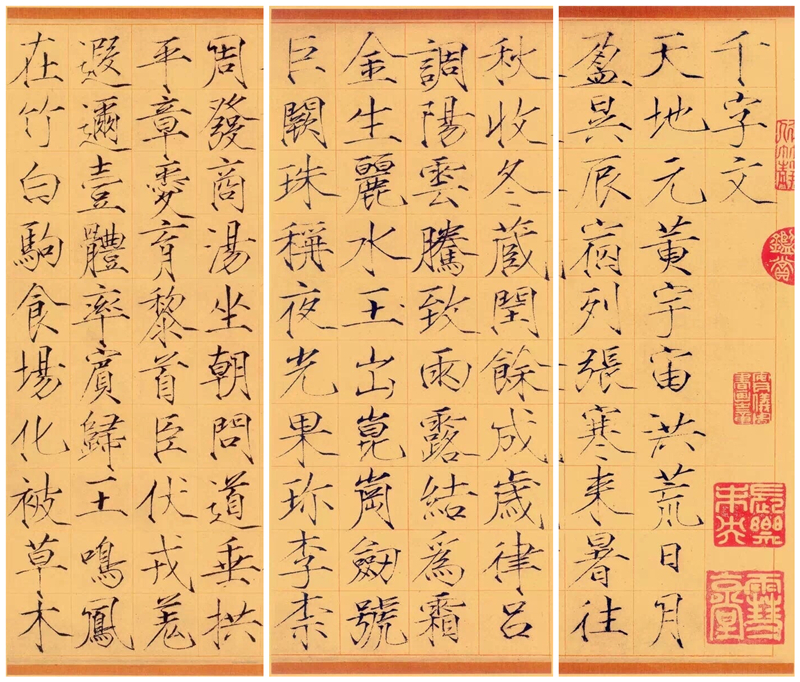 千字文
天地元黃宇宙洪荒日月
盈昃辰宿列張寒来暑往
秋收冬蔵閏餘成歲律呂
調陽雲騰致雨露結爲霜
金生麗水玉出崑崗劒號
巨闕珠稱夜光果珎李柰
周發商湯坐朝問道垂拱
平章愛育黎首臣伏戎羌
遐邇壹體率賓歸王鳴鳳
在竹白駒食場化被草木
鑑賞